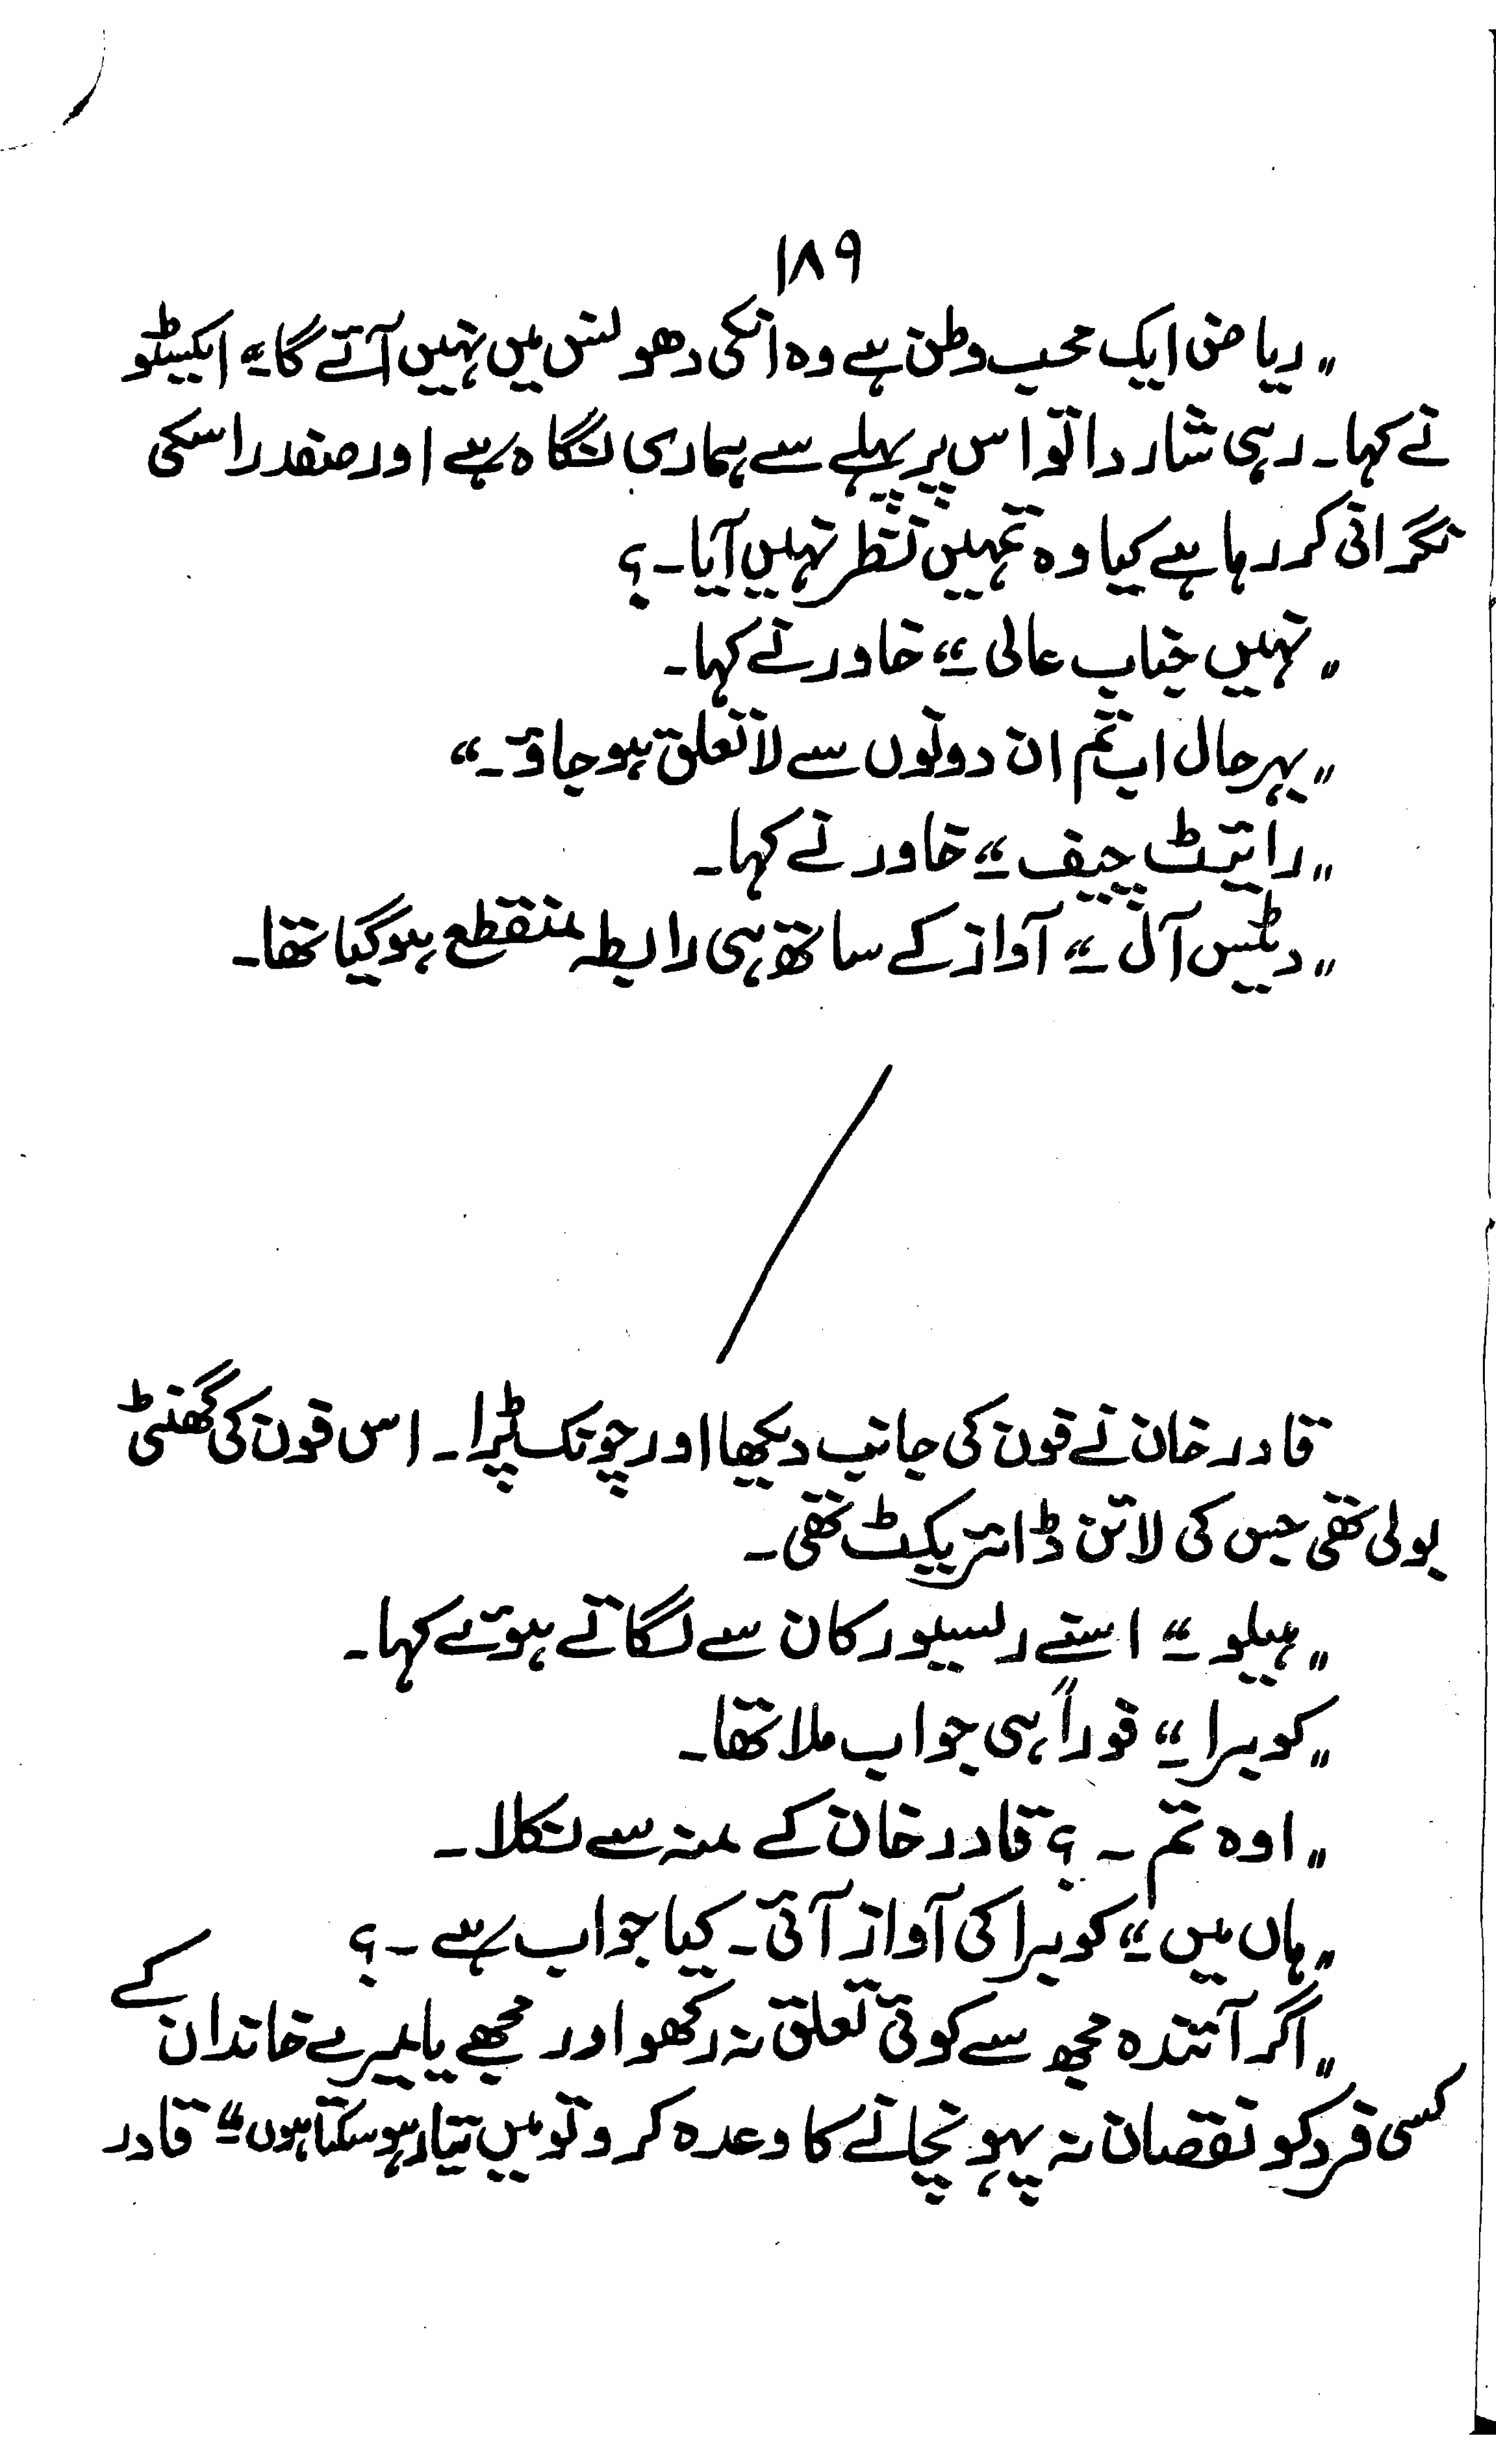 ۱۸۹
"ریاض ایک محب وطن ہے وہ انکی دھونس میں نہیں آئے گا۔" ایکسیٹو
نے کہا۔ رہی شاردا تو اس پر پہلے سے ہماری نگاہ ہے اور صفدر اسکی
نگرانی کر رہا ہے کیا وہ تمہیں نظر نہیں آیا۔؟
"نہیں جناب عالی۔" خاور نے کہا۔
"بہرحال اب تم ان دونوں سے لاتعلق ہو جاؤ۔"
"رائیٹ چیف۔" خاور نے کہا۔
"دیٹس آل۔" آواز کے ساتھ ہی رابطہ منقطع ہو گیا تھا۔
قادر خان نے فون کی جانب دیکھا اور چونک پڑا۔ اس فون کی گھنٹی
بولی تھی جس کی لائن ڈائریکٹ تھی۔
"ہیلو۔" اسنے رسیور کان سے لگاتے ہوئے کہا۔
"کوبرا۔" فوراً ہی جواب ملا تھا۔
"اوہ تم۔؟ قادر خان کے منہ سے نکلا۔
"ہاں میں۔" کوبرا کی آواز آئی۔ کیا جواب ہے۔؟
"اگر آئندہ مجھ سے کوئی تعلق نہ رکھو اور مجھے یا میرے خاندان کے
کسی فرد کو نقصان نہ پہونچانے کا وعدہ کرو تو میں تیار ہو سکتا ہوں۔" قادر